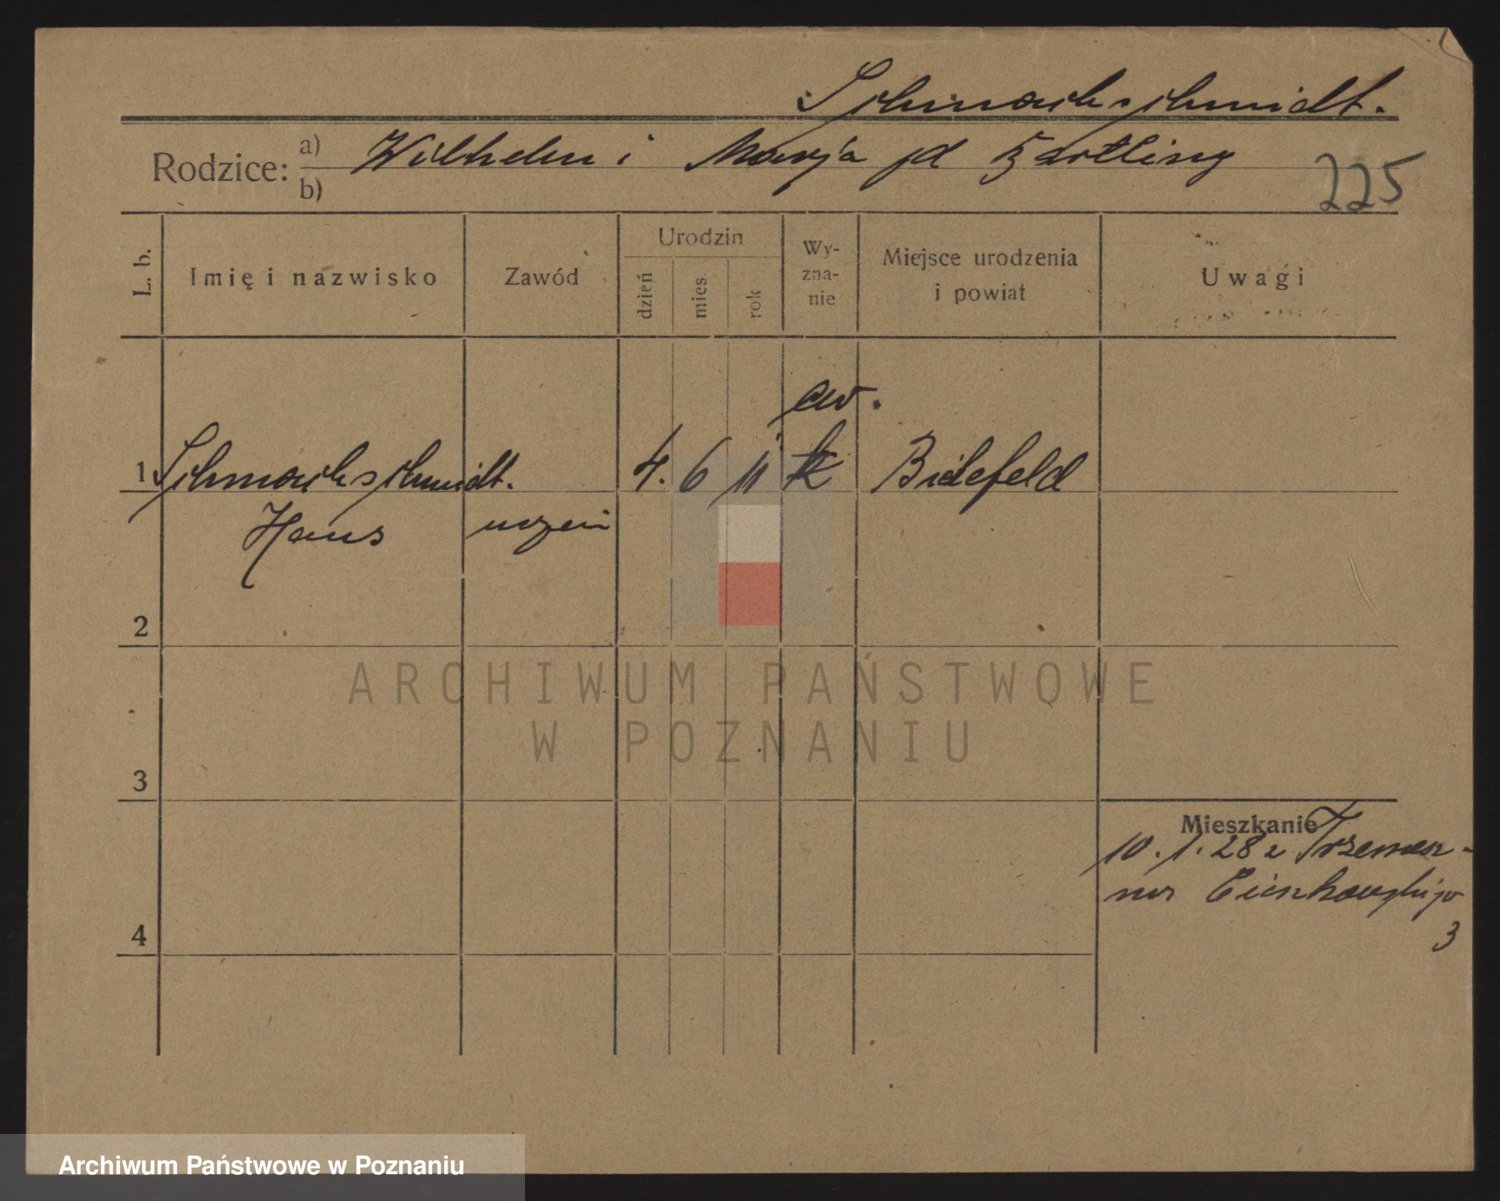 Schmackschmidt.
Rodzice: a) Wilhelm i Marja jd
b)
225
L. b.
Imię i nazwisko
Zawód
Urodzin
dzień
mies.
rok
Wy-
zna-
nie
Miejsce urodzenia
i powiat
Uwagi
ew.
1 Schmackschmidt. 4. 6 11 k Bielefeld
Hans uczeń
2
3
4
Mieszkanie
10. 1. 28 z Trzemesz-
na
3
ARCHIWUM PAŃSTWOWE
W POZNANIU
Archiwum Państwowe w Poznaniu